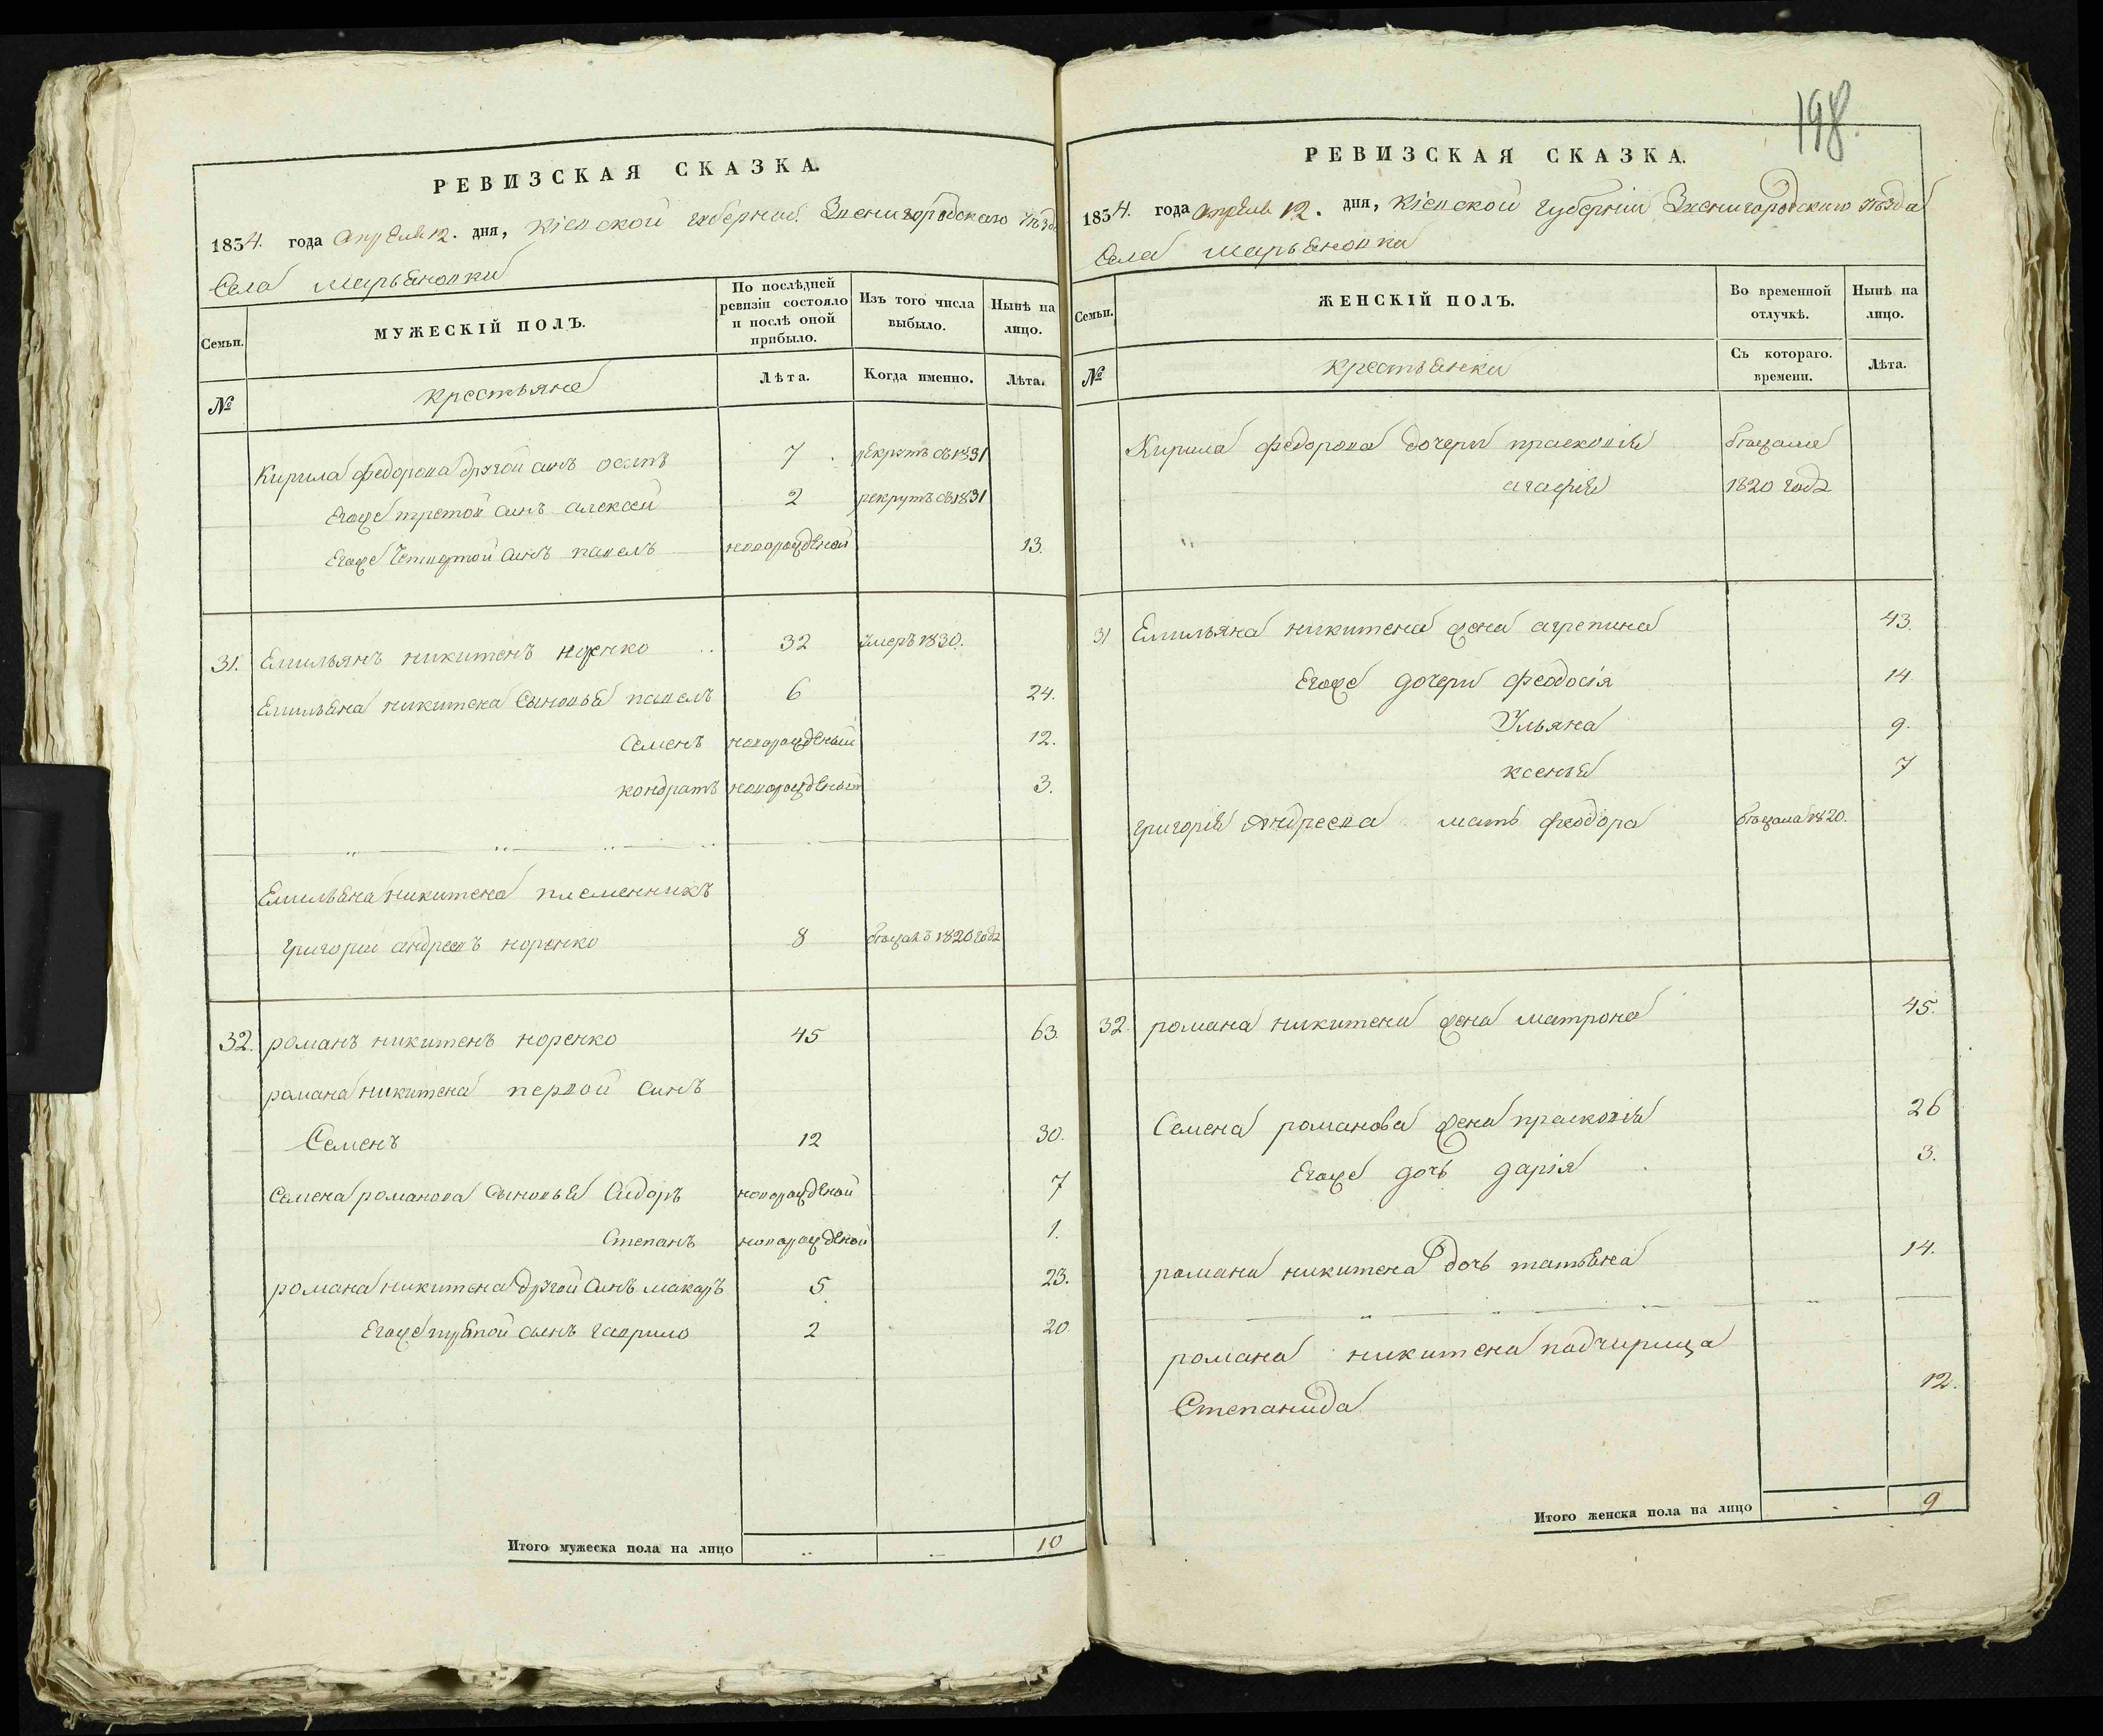 198.
РЕВИЗСКАЯ СКАЗКА.
1834. года Апреля 12. дня, Кіевской губерніи Звенигородскаго уѣзда
Села Марьяновки
Семьи.
МУЖЕСКІЙ ПОЛЪ.
По послѣдней ревизіи состояло и послѣ оной прибыло.
Изъ того числа выбыло.
Нынѣ на лицо.
№
крестьяне
Лѣта.
Когда именно.
Лѣта.
Кирила федорова другой синъ осипъ 7 рекрутъ съ 1831
Егоже третой синъ алексей 2 рекрутъ съ 1831
Егоже Четвертой синъ павелъ новорожденой 13.
31. Емильянъ никитенъ норенко 32 умеръ 1830.
Емильяна никитена Сыновья павелъ 6 24.
Семенъ новорожденый 12.
кондратъ новорожденый 3.
Емильяна никитена племенникъ
григории андреевъ норенко 8 бежалъ 1820 года
32. романъ никитенъ норенко 45 63.
романа никитена первой синъ
Семенъ 12 30.
Семена романова Сыновья Сидоръ новорожденой 7
Степанъ новорожденой 1.
романа никитена другой синъ макаръ 5 23.
Егоже третой сынъ гаврило 2 20
Итого мужеска пола на лицо 10
РЕВИЗСКАЯ СКАЗКА.
1834. года Апреля 12. дня, Кіевской губерніи Звенигородскаго уѣзда
Села Марьяновка
Семьи.
ЖЕНСКІЙ ПОЛЪ.
Во временной отлучкѣ.
Нынѣ на лицо.
№
крестьянки
Съ котораго. времени.
Лѣта.
Кирила федорова дочери прасковія бежали
агафія 1820 года
31 Емильяна никитена жена агрепина 43.
Егоже дочери феодосія 14
Ульяна 9.
ксенья 7
григорія Андреева мать феодора бежала 1820.
32. романа никитена жена матрона 45.
Семена романова жена прасковія 26
Егоже дочь дарія 3.
романа никитена дочь татьяна 14.
романа никитена падчирица
Степанида 12.
Итого женска пола на лицо 9